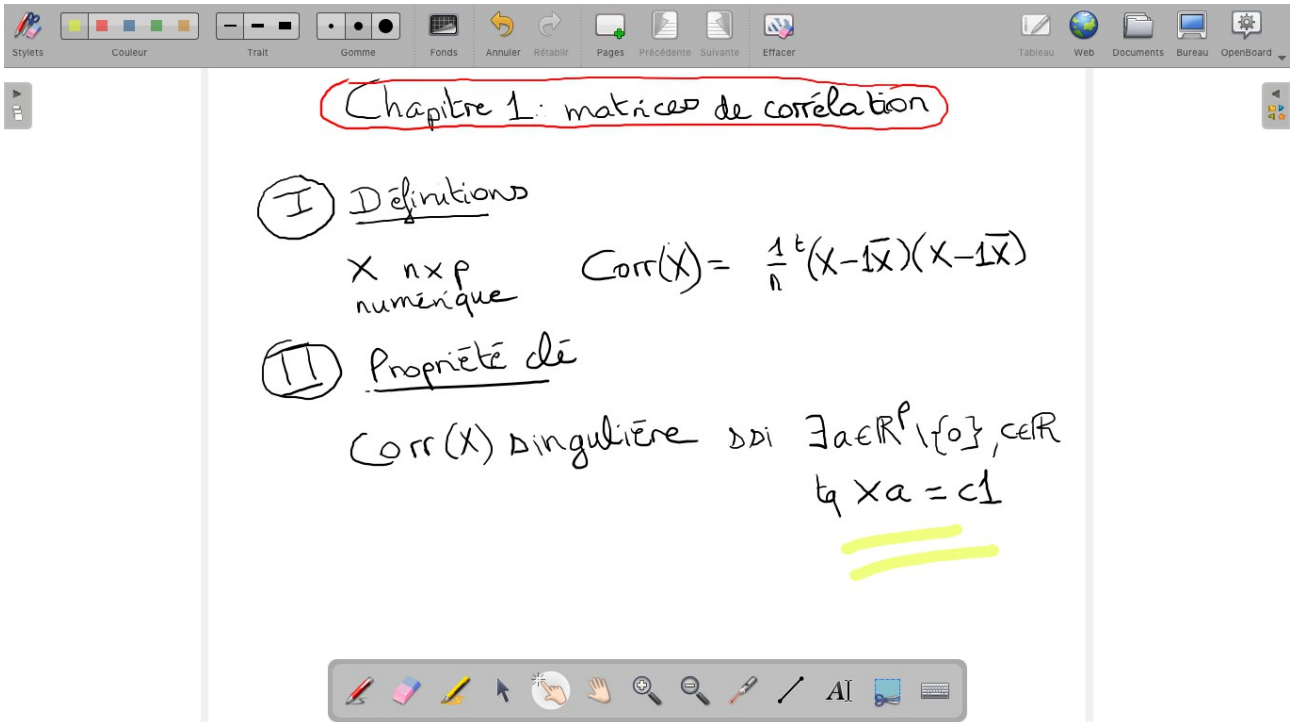 Stylets Couleur Trait Gomme Fonds Annuler Rétablir Pages Précédente Suivante Effacer Tableau Web Documents Bureau OpenBoard
Chapitre 1: matrices de corrélation
I Définitions
X n×p Corr(X) = 1/n ᵗ(X-1X̅)(X-1X̅)
numérique
II Propriété clé
Corr(X) singulière ssi ∃a∈ℝᵖ\{0}, c∈ℝ
tq Xa = c1
AI